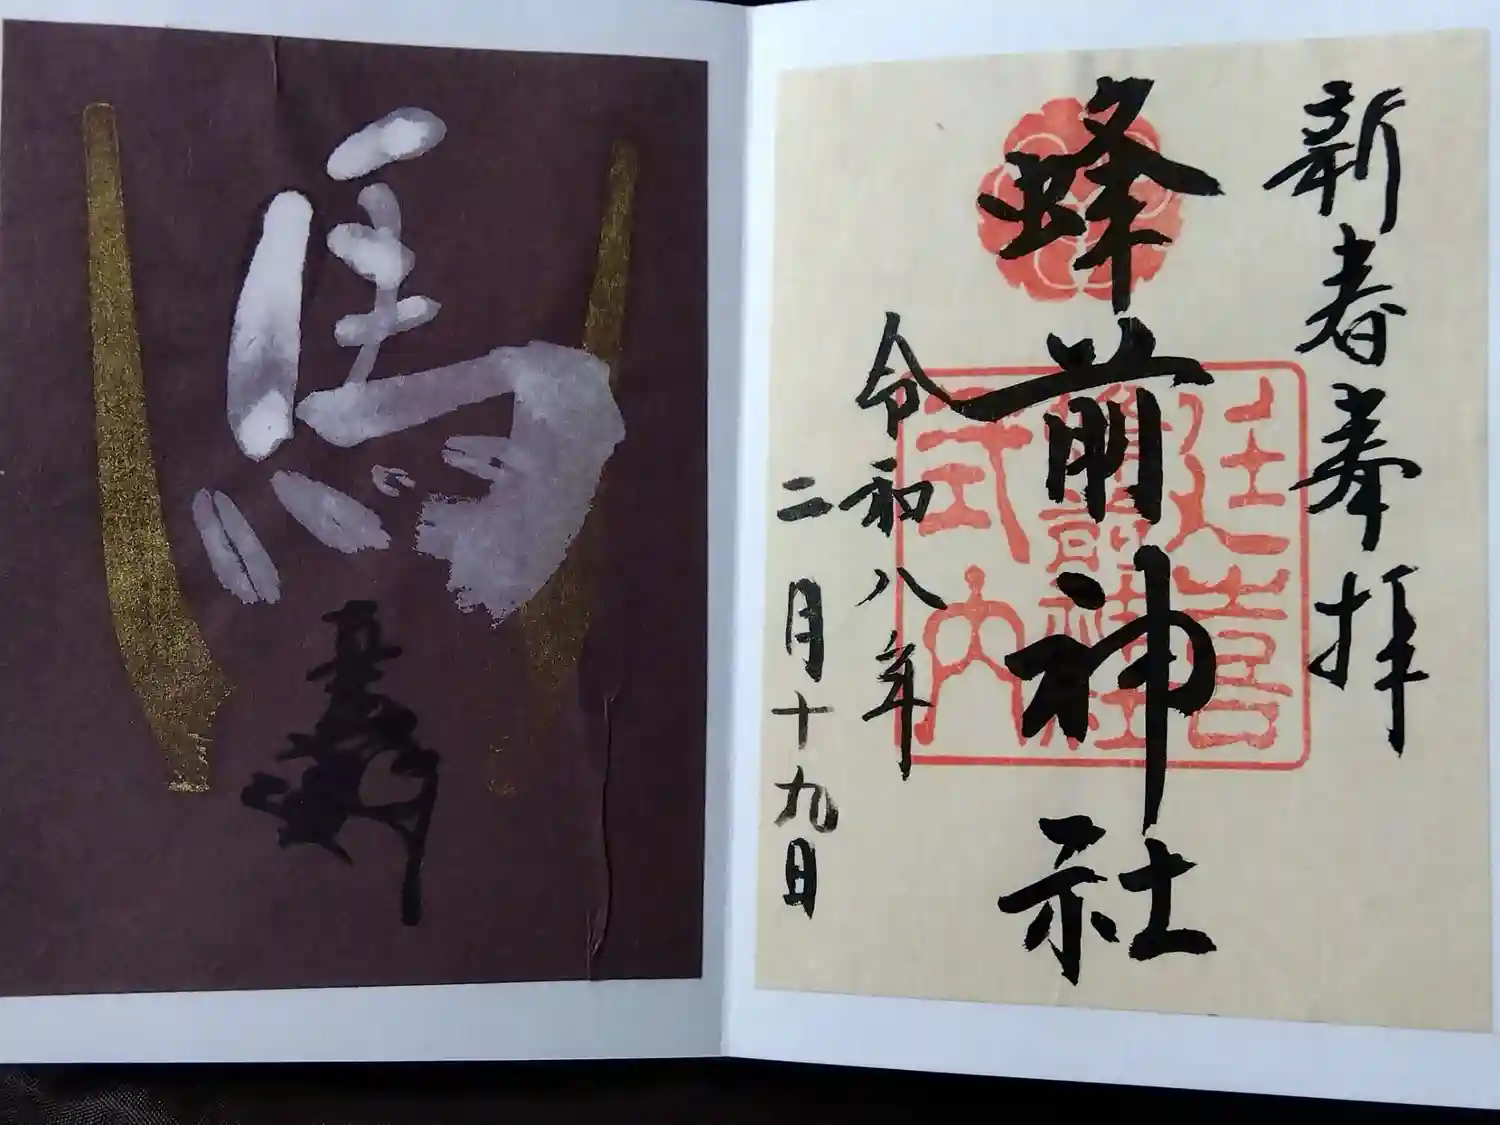 新春奉拝
蜂前神社
延喜
蜂前神社
式内
令和八年
二月十九日
馬